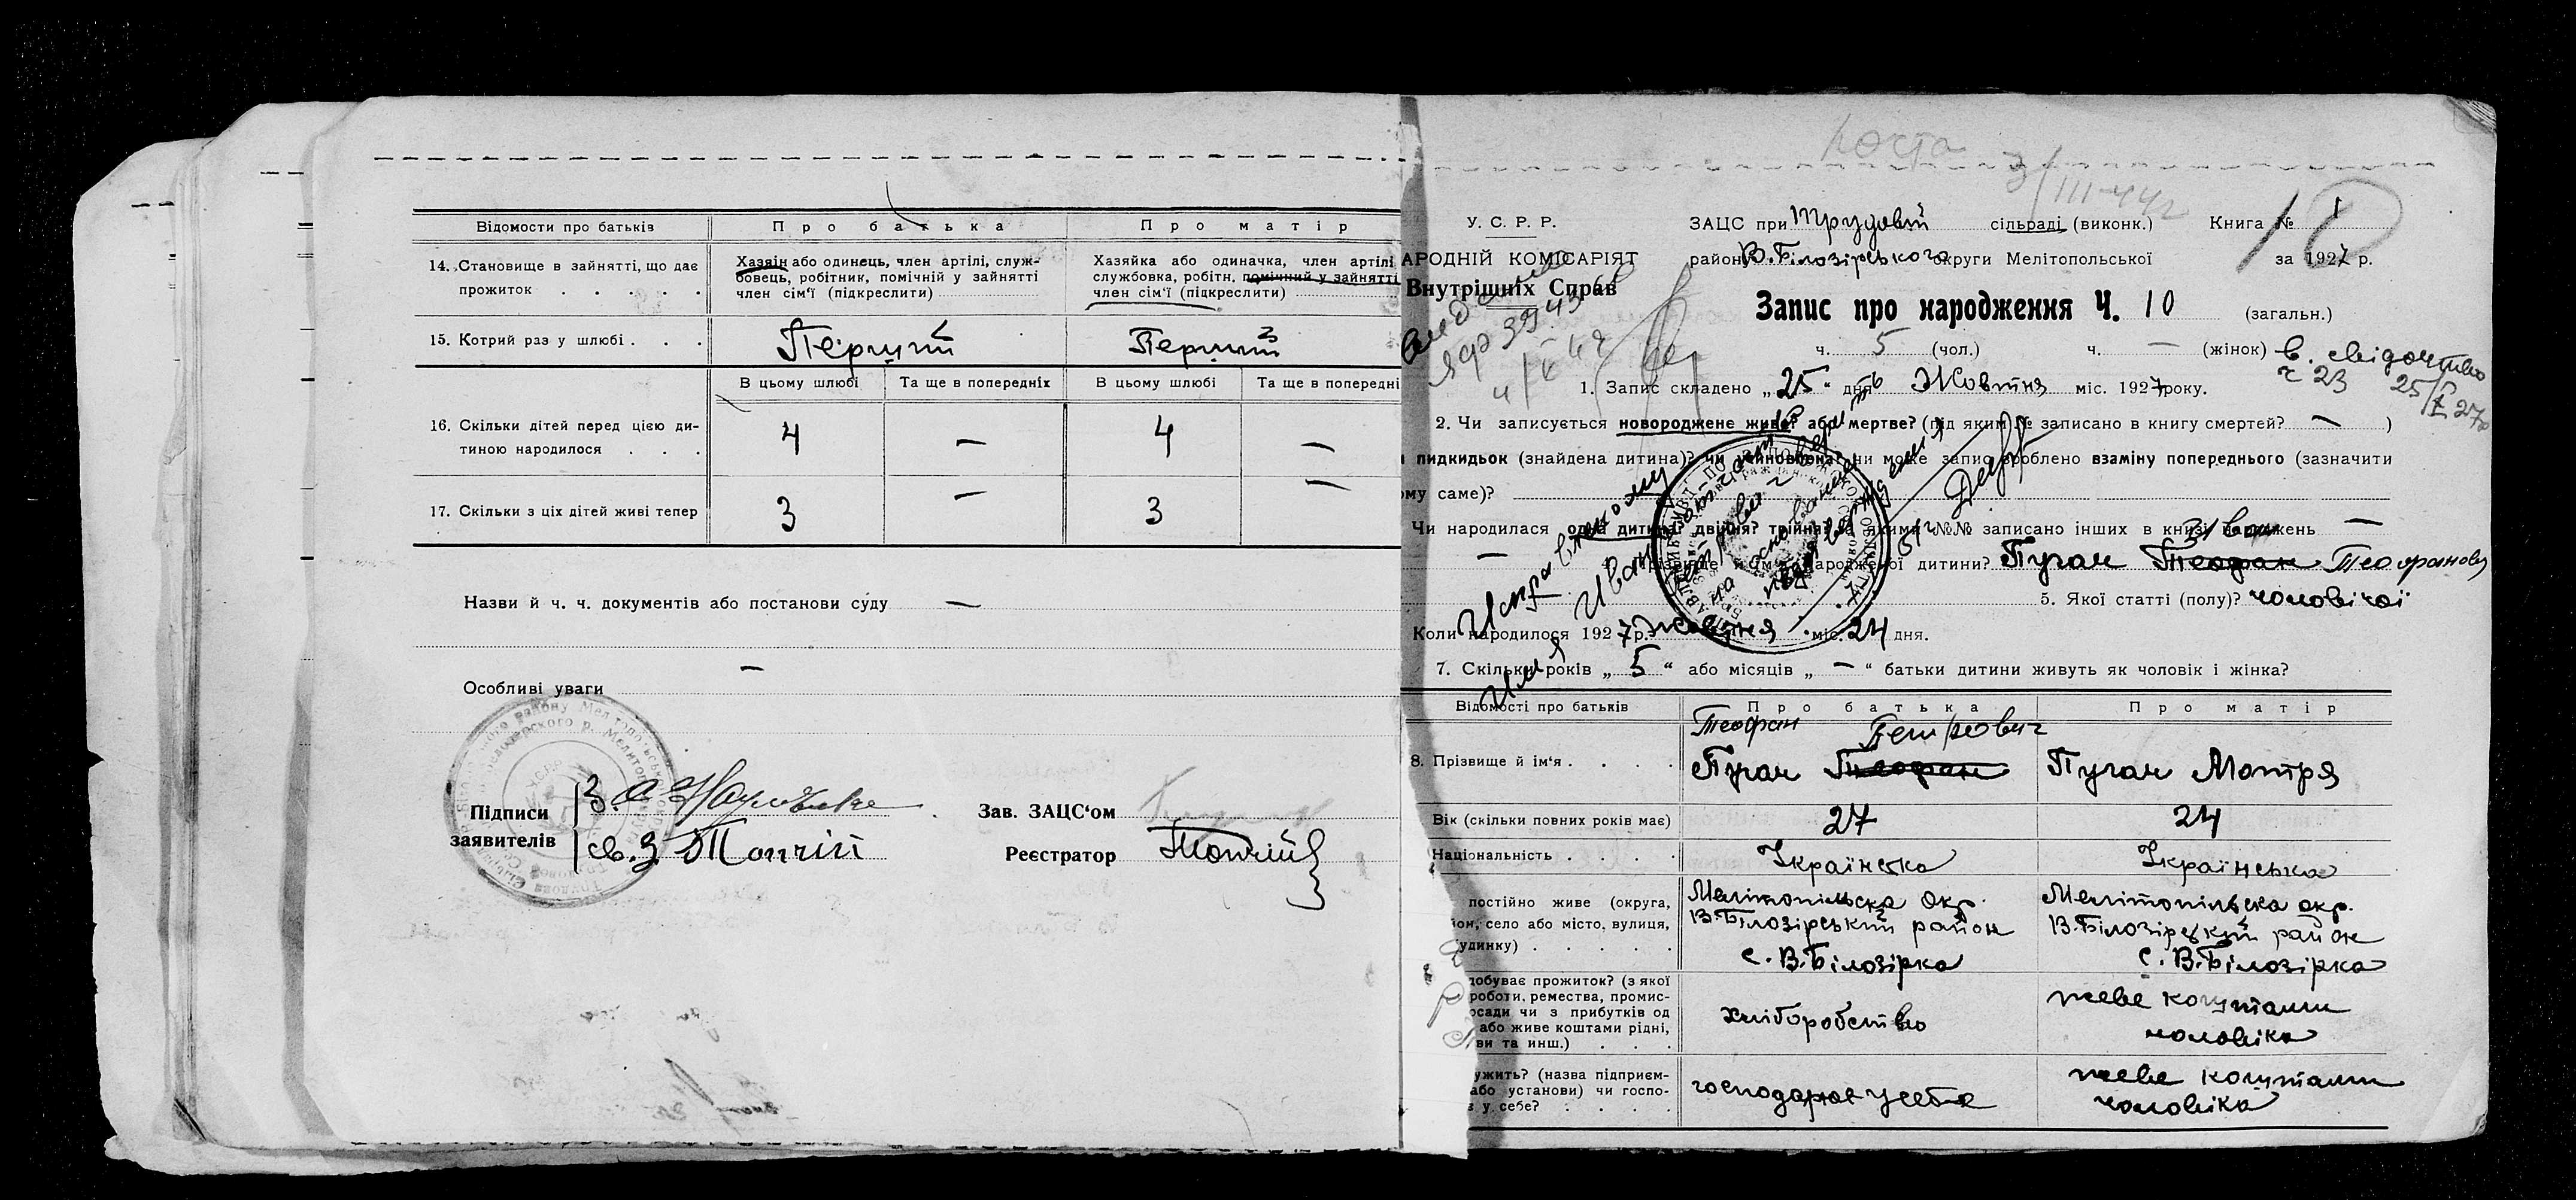 Відомости про батьків
Про батька
Про матір
14. Становище в зайнятті, що дає
прожиток
Хазяїн або одинець, член артілі, служ-
бовець, робітник, помічній у зайнятті
член сім'ї (підкреслити)
Хазяйка або одиначка, член артілі
службовка, робітн, помічний у зайнятті
член сім'ї (підкреслити)
15. Котрий раз у шлюбі
Перший
Перший
В цьому шлюбі
Та ще в попередніх
В цьому шлюбі
Та ще в попередні
16. Скільки дітей перед цією ди-
тиною народилося
4 — 4 —
17. Скільки з ціх дітей живі тепер
3 — 3 —
Назви й ч. ч. документів або постанови суду —
Особливі уваги —
Підписи
заявителів
св. З Топчій
Зав. ЗАЦС'ом
Реєстратор Топчій
Коста
3/III-44г
У. С. Р. Р.
АРОДНІЙ КОМІСАРІЯТ
Внутрішніх Справ
ЗАЦС при Трудовій сільраді (виконк.) Книга № 1
району В.Білозірського округи Мелітопольської за 1927 р.
10
Запис про народження Ч. 10 (загальн.)
ч. 5 (чол.) ч. — (жінок)
в. свідоцтво
ч 23
1. Запис складено „25" дня Жовтня міс. 1927 року.
2. Чи записується новороджене живе? або мертве? (під яким № записано в книгу смертей? — )
пидкидьок (знайдена дитина)? чи чи може запис зроблено взаміну попереднього (зазначити
ому саме)?
Чи народилася одна дитина? двійня? трійня? за якими №№ записано інших в книзі народжень —
Прізвище й ім'я народженої дитини? Пуган Теофан Теофанов
5. Якої статті (полу)? чоловічої
Коли народилося 1927 р. Жовтня міс. 24 дня.
7. Скільки років „ 5 " або місяців „ — " батьки дитини живуть як чоловік і жінка?
Відомості про батьків
Про батька
Про матір
Теофан Петрович
8. Прізвище й ім'я
Пуган Теофан
Пуган Мотря
Вік (скільки повних років має)
27
24
Національність
Українська
Українська
постійно живе (округа,
йон, село або місто, вулиця,
удинку)
Мелітопільска окр.
В.Білозірський район
с. В.Білозірка
Мелітопільска окр.
В.Білозірський район
с. В.Білозірка
добуває прожиток? (з якої
роботи, ремества, промис-
осади чи з прибутків од
або живе коштами рідні,
ви та инш.)
хліборобство
живе коштами
чоловіка
ужить? (назва підприєм-
або установи) чи госпо-
в у себе?
господарює у себе
живе коштами
чоловіка